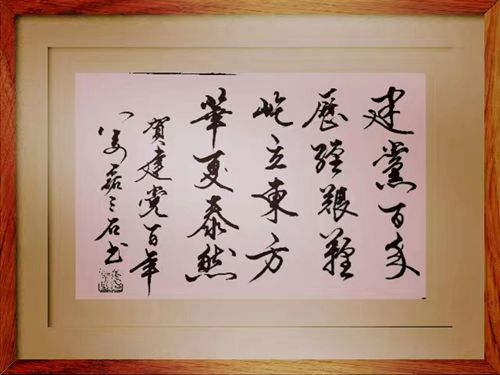 建黨百年
歷經艱難
屹立東方
華夏泰然
賀建党百年
磊 石书